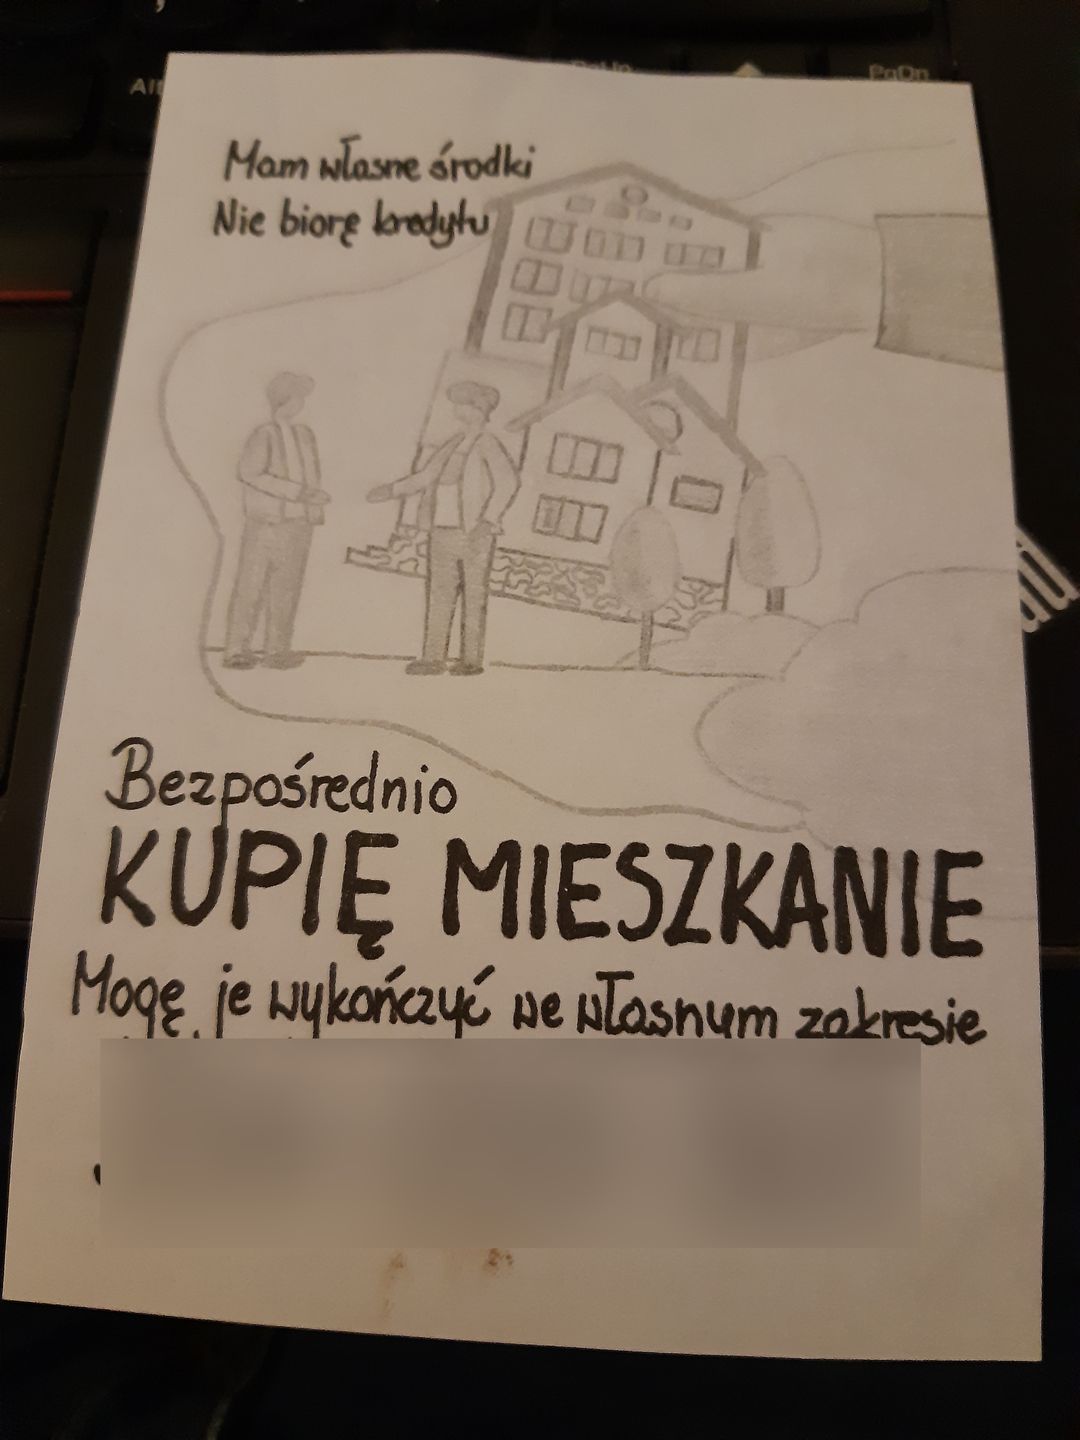 Alt
PgUp
PgDn
Mam własne środki
Nie biorę kredytu
Bezpośrednio
KUPIĘ MIESZKANIE
Mogę je wykończyć we własnym zakresie